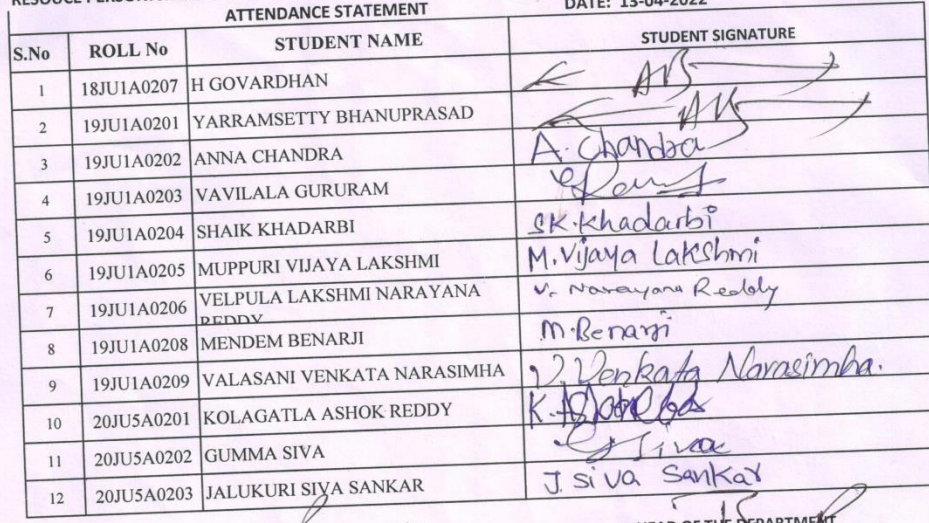 DATE: 13-04-2022
ATTENDANCE STATEMENT
S.No ROLL No STUDENT NAME STUDENT SIGNATURE
1 18JU1A0207 H GOVARDHAN AB
2 19JU1A0201 YARRAMSETTY BHANUPRASAD AB
3 19JU1A0202 ANNA CHANDRA A. Chandra
4 19JU1A0203 VAVILALA GURURAM
5 19JU1A0204 SHAIK KHADARBI SK. Khadarbi
6 19JU1A0205 MUPPURI VIJAYA LAKSHMI M. Vijaya Lakshmi
7 19JU1A0206 VELPULA LAKSHMI NARAYANA V. Narayana Reddy
REDDY
8 19JU1A0208 MENDEM BENARJI M. Benarji
9 19JU1A0209 VALASANI VENKATA NARASIMHA V. Venkata Narasimha.
10 20JU5A0201 KOLAGATLA ASHOK REDDY
11 20JU5A0202 GUMMA SIVA G Siva
12 20JU5A0203 JALUKURI SIVA SANKAR J. Siva Sankar
HEAD OF THE DEPARTMENT